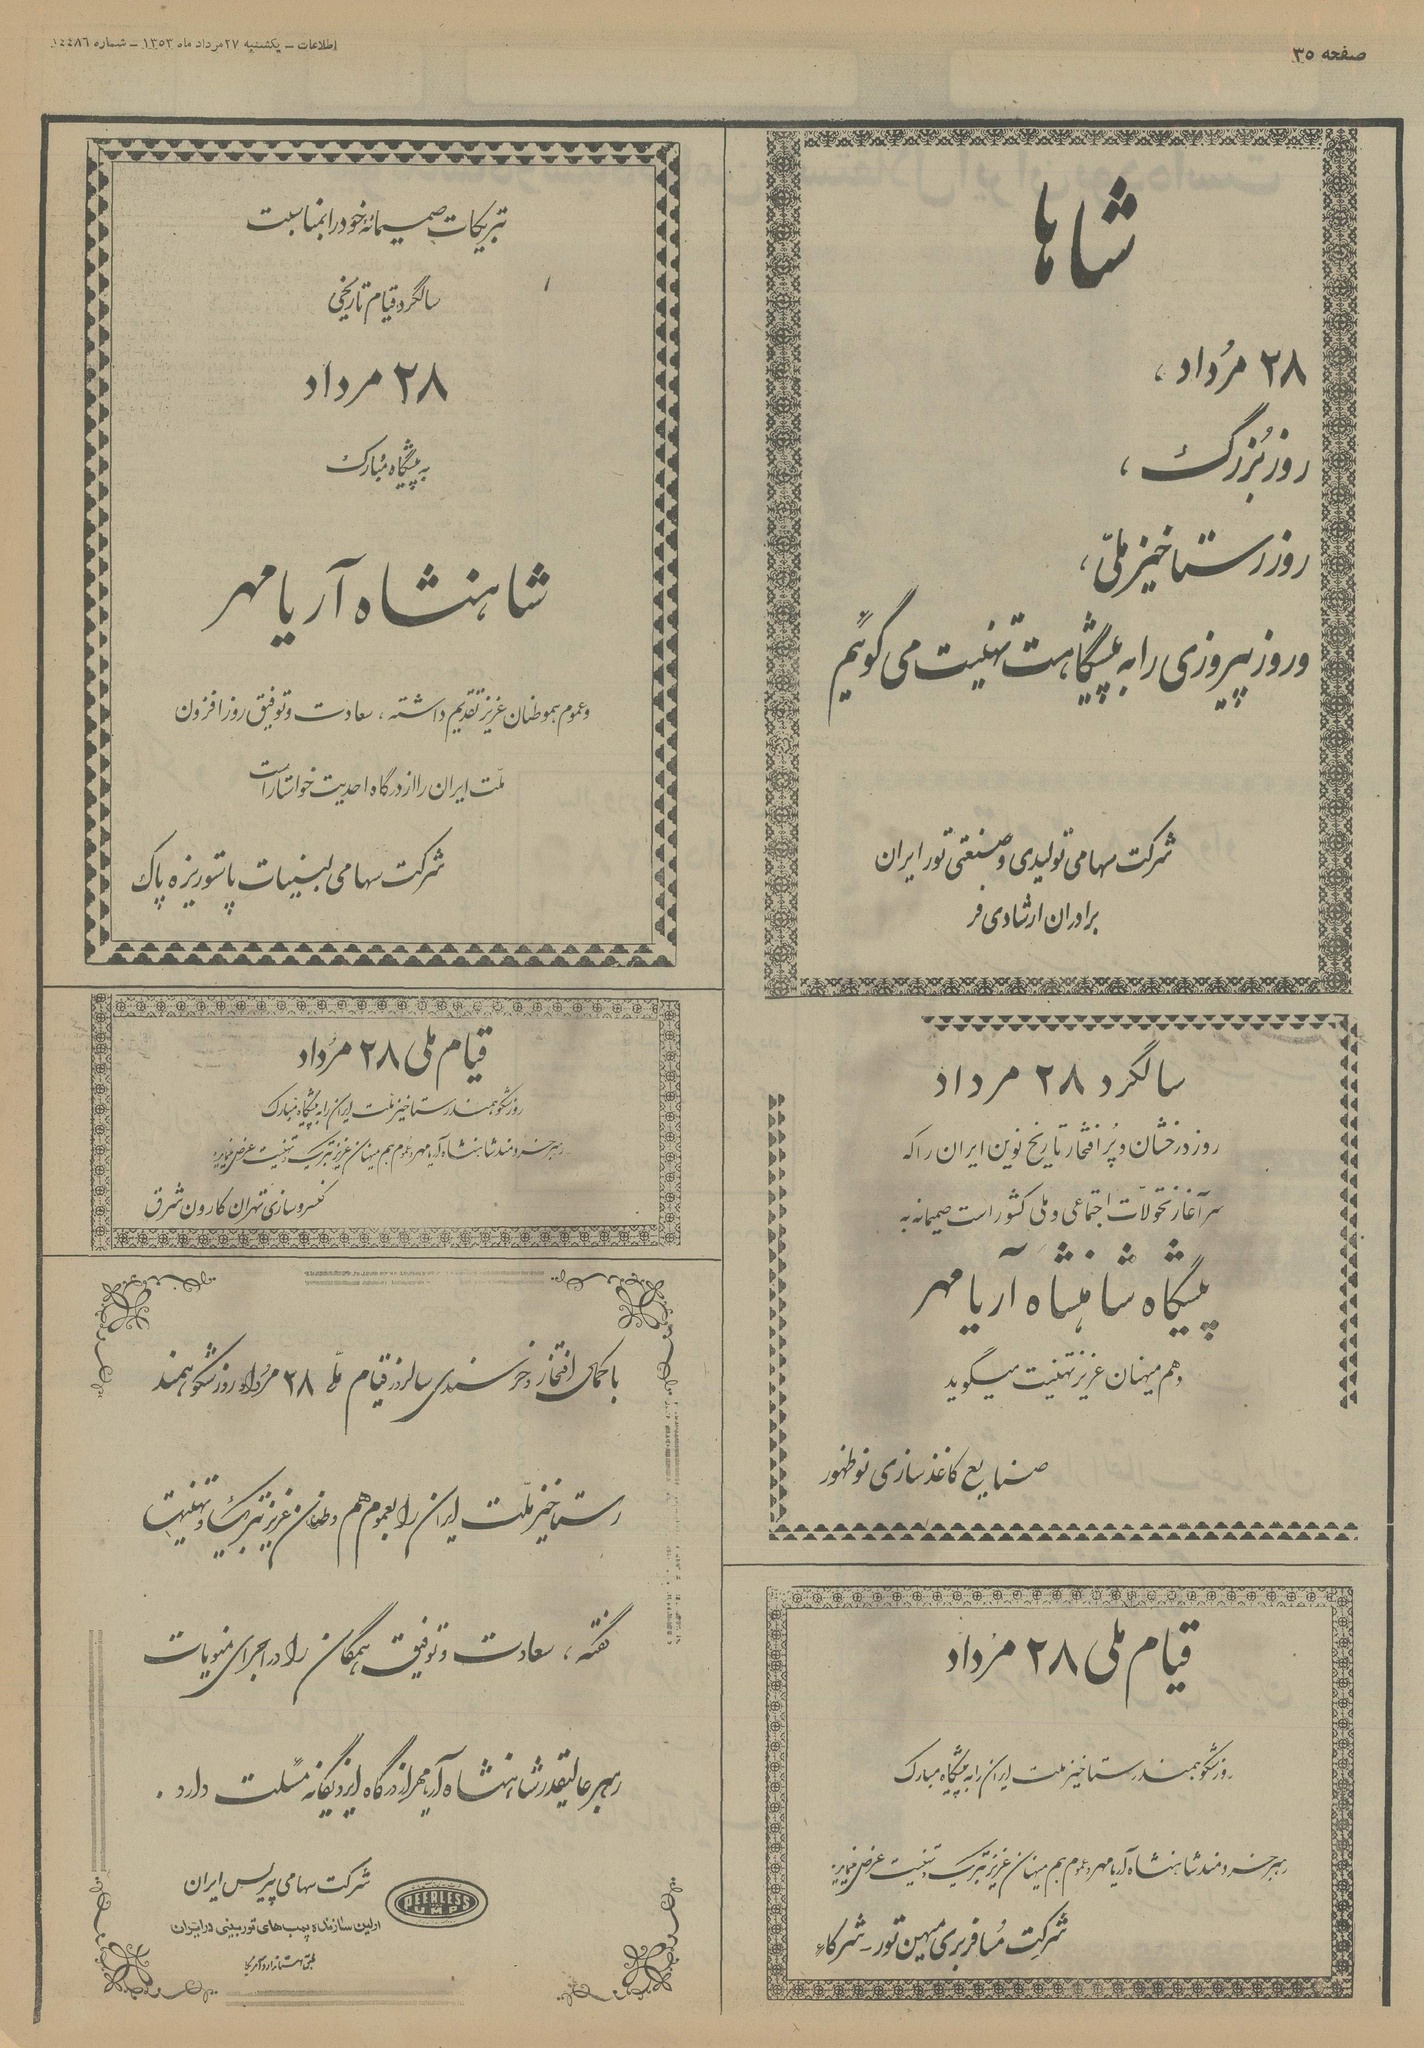 صفحه ۳۵
اطلاعات – یکشنبه ۲۷ مرداد ماه ۱۳۵۳ – شماره ۱۴۴۸۶
شاها
۲۸ مرداد،
روز بزرگ،
روز رستاخیز ملّی،
و روز پیروزی را به پیشگاهت تهنیت می گوئیم
شرکت سهامی تولیدی و صنعتی تور ایران
برادران ارشادی فر
سالگرد ۲۸ مرداد
روز درخشان و پر افتخار تاریخ نوین ایران را که
سرآغاز تحولات اجتماعی و ملی کشور است صمیمانه به
پیشگاه شاهنشاه آریامهر
و هم میهنان عزیز تهنیت میگوید
صنایع کاغذ سازی نوظهور
قیام ملی ۲۸ مرداد
روز شکوهمند رستاخیز ملت ایران را به پیشگاه مبارک
رهبر خردمند شاهنشاه آریامهر و عموم هم میهنان عزیز تبریک و تهنیت عرض مینماید
شرکت مسافربری میهن تور - شرکاء
تبریکات صمیمانه خود را بمناسبت
سالگرد قیام تاریخی
۲۸ مرداد
به پیشگاه مبارک
شاهنشاه آریامهر
و عموم هموطنان عزیز تقدیم داشته، سعادت و توفیق روزافزون
ملت ایران را از درگاه احدیت خواستار است
شرکت سهامی لبنیات پاستوریزه پاک
قیام ملی ۲۸ مرداد
روز شکوهمند رستاخیز ملت ایران را به پیشگاه مبارک
رهبر خردمند شاهنشاه آریامهر و عموم هم میهنان عزیز تبریک و تهنیت عرض مینماید
کنسروسازی تهران کارون شرق
با کمال افتخار و خرسندی سالروز قیام ملی ۲۸ مرداد روز شکوهمند
رستاخیز ملّت ایران را بعموم هم وطنان عزیز تبریک و تهنیت
گفته، سعادت و توفیق همگان را در اجرای منویات
رهبر عالیقدر شاهنشاه آریامهر از درگاه ایزد یگانه مسئلت دارد.
شرکت سهامی پیرلس ایران
PEERLESS
PUMPS
اولین سازنده پمپ‌های توربینی در ایران
طبق استاندارد آمریکا